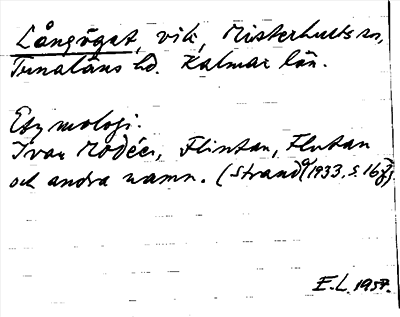 Långöget, vik, Misterhults sn,
Tunaläns hd. Kalmar län.
Etymologi:
Ivar Modéer, Flintan, Flutan
och andra namn. (Strand 1933, s. 16
E.L. 1957.